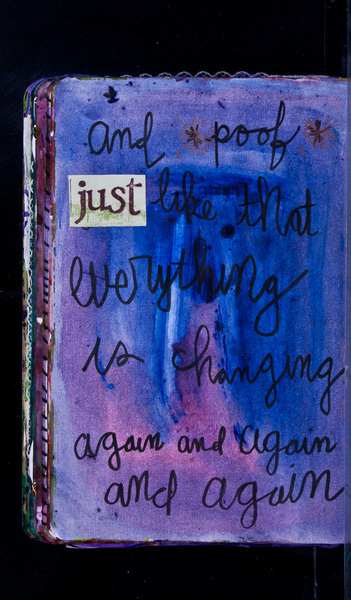 and * poof *
just like that
everything
is changing
again and again
and again